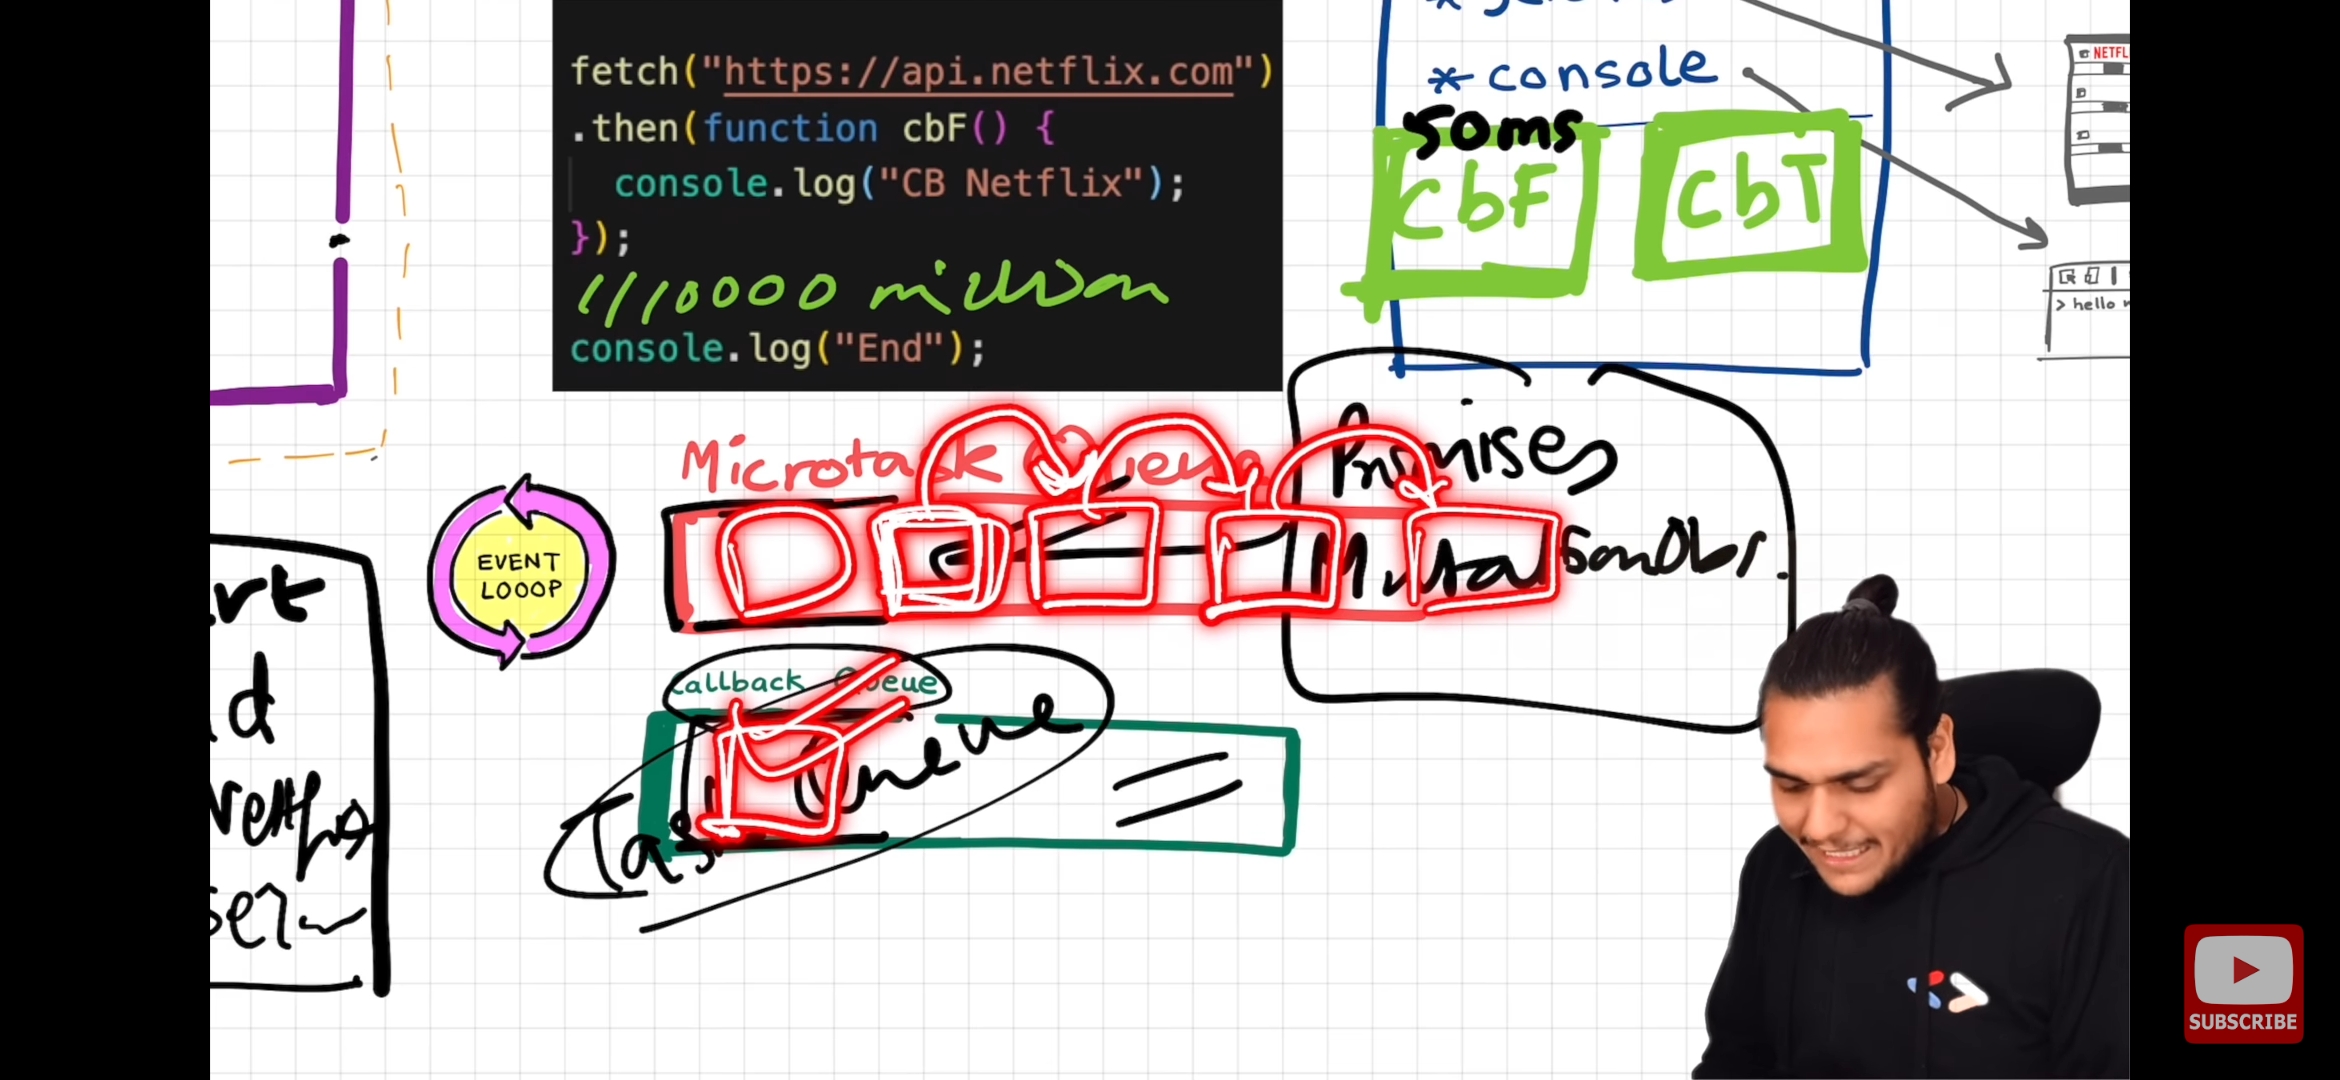 fetch("https://api.netflix.com")
.then(function cbF() {
console.log("CB Netflix");
});
// 10000 million
console.log("End");
* console
50ms
CbF
CbT
NETFL
> hello
Microtask Queue
Promises
Mutation Obs.
EVENT
LOOOP
Callback Queue
Task Queue
SUBSCRIBE